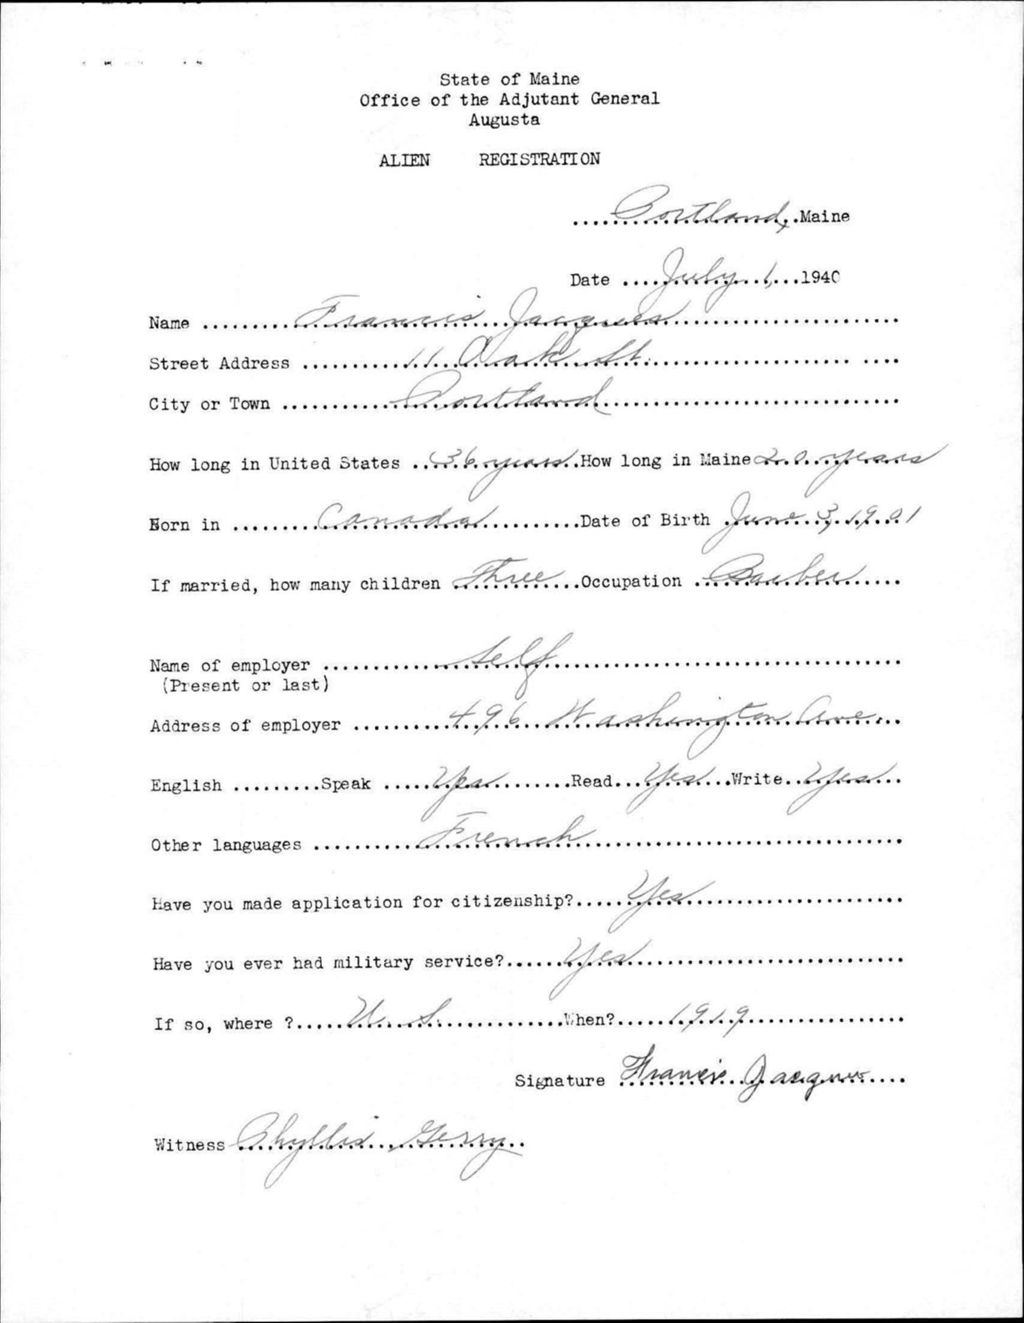 State of Maine
Office of the Adjutant General
Augusta
ALIEN REGISTRATION
Portland, Maine
Date July 1, 1940
Name Francis Jacques
Street Address 11 Oak St.
City or Town Portland
How long in United States 36 years How long in Maine 20 years
Born in Canada Date of Birth June 3, 1901
If married, how many children Three Occupation Barber
Name of employer Self
(Present or last)
Address of employer 496 Washington Ave.
English Speak Yes Read Yes Write Yes
Other languages French
Have you made application for citizenship? Yes
Have you ever had military service? Yes
If so, where ? U. S. When? 1919
Signature Francis Jacques
Witness Phyllis Gerry